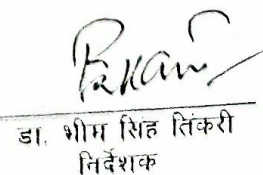 डा. भीम सिंह तिंकरी
निर्देशक